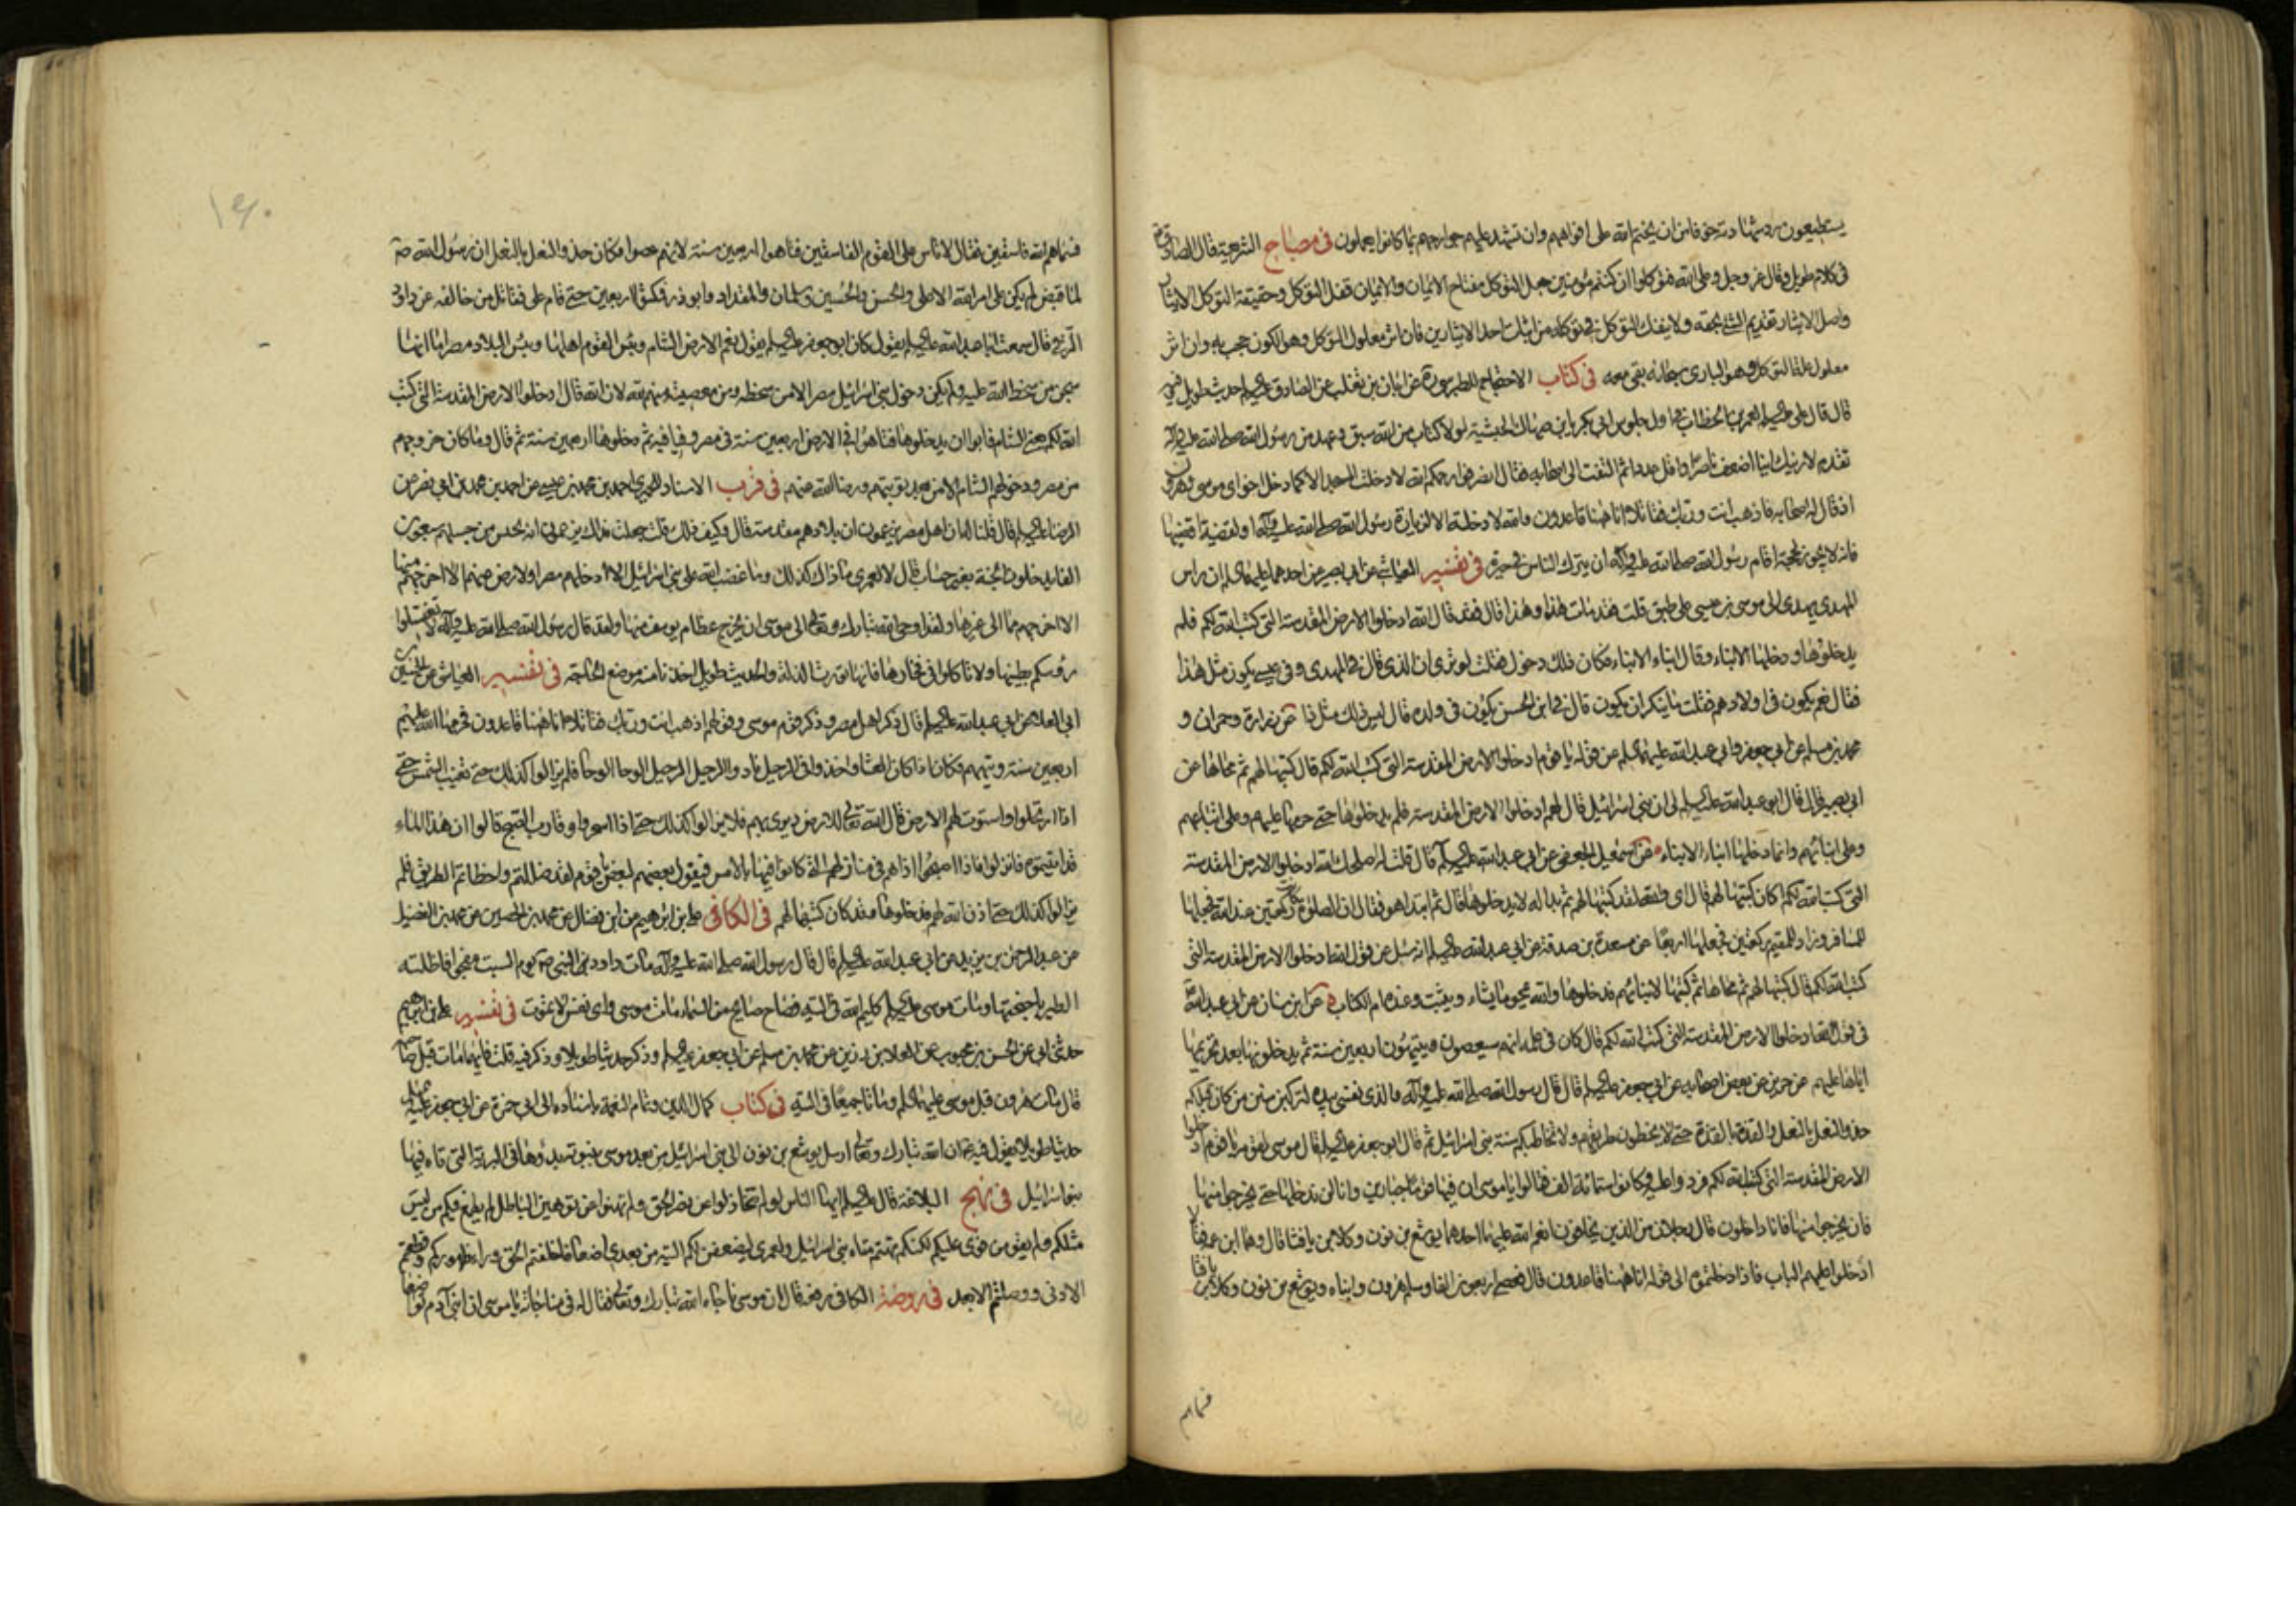 يستطيعون رد شهادته خوفا من ان يختم الله على افواههم وان تشهد عليهم جوارحهم بما كانوا يعملون في مصباح الشريعة قال الصادق ع
في كلام طويل وقال عز وجل وعلى الله فتوكلوا ان كنتم مؤمنين جعل التوكل مفتاح الايمان والايمان قفل التوكل وحقيقة التوكل الايثار
واصل الايثار تقديم الشئ بحقه ولا ينفك المتوكل في توكله من اثبات احد الايثارين فان اثر معلول التوكل وهو الكون حجب به وان اثر
معلل علة التوكل وهو الباري سبحانه بقي معه في كتاب الاحتجاج للطبرسي ره عن ابان بن تغلب عن الصادق عليه السلم حديث طويل فيه
قال قال علي عليه السلم لعمر بن الخطاب في اول جلوس ابي بكر يا بن صهاك الحبشية لولا كتاب من الله سبق وعهد من رسول الله صلى الله عليه وآله
تقدم لاريتك اينا اضعف ناصرا واقل عددا ثم التفت الى اصحابه فقال انصرفوا رحمكم الله لا دخلت المسجد الا كما دخل اخواي موسى وهرون
اذ قال له اصحابه فاذهب انت وربك فقاتلا انا ههنا قاعدون والله لا دخلته الا لزيارة رسول الله صلى الله عليه وآله او لقضية اقضيها
فانه لا يجوز لحجة اقامه رسول الله صلى الله عليه وآله ان يترك الناس في حيرة في تفسير العياشي عن ابي بصير عن احدهما عليهما السلم ان راس
المهدي يهدى الى موسى بن عيسى على طبق قلت فقد مات هذا وهذا قال فقد قال الله ادخلوا الارض المقدسة التي كتب الله لكم فلم
يدخلوها ودخلها الابناء وقال ابناء الابناء فكان ذلك دخولهم فقلت او ترى ان الذي قال في المهدي وفي عيسى يكون مثل هذا
فقال نعم يكون في اولادهم فقلت ما ينكر ان يكون قال في ابن الحسن يكون في ولده قال ليس ذلك مثل ذا عن زرارة وحمران و
محمد بن مسلم عن ابي جعفر وابي عبد الله عليهما السلم عن قوله يا قوم ادخلوا الارض المقدسة التي كتب الله لكم قال كتبها لهم ثم محاها عن
ابي بصير قال قال ابو عبد الله عليه السلم لي ان بني اسرائيل قال لهم ادخلوا الارض المقدسة فلم يدخلوها حتى حرمها عليهم وعلى ابنائهم
وعلى ابنائهم وانما دخلها ابناء الابناء عن اسمعيل الجعفي عن ابي عبد الله عليه السلم قال قلت له اصلحك الله ادخلوا الارض المقدسة
التي كتب الله لكم اكان كتبها لهم قال اي والله لقد كتبها لهم ثم بدا له لا يدخلوها قال ثم ابتدا هو فقال ان الصلوة كانت ركعتين عند الله فجعلها
للمسافر وزاد للمقيم ركعتين فجعلها اربعا عن مسعدة بن صدقة عن ابي عبد الله عليه السلم انه سئل عن قول الله ادخلوا الارض المقدسة التي
كتب الله لكم قال كتبها لهم ثم محاها ثم كتبها لابنائهم فدخلوها والله يمحو ما يشاء ويثبت وعنده ام الكتاب عن ابن سنان عن ابي عبد الله ع
في قول الله ادخلوا الارض المقدسة التي كتب الله لكم قال كان في علمه انهم سيعصون ويتيهون اربعين سنة ثم يدخلونها بعد تحريمها
اياها عليهم عن حريز عن بعض اصحابه عن ابي جعفر عليه السلم قال قال رسول الله صلى الله عليه وآله والذي نفسي بيده لتركبن سنن من كان قبلكم
حذو النعل بالنعل والقذة بالقذة حتى لا تخطون طريقهم ولا تخطاكم سنة بني اسرائيل ثم قال ابو جعفر عليه السلم قال موسى لقومه يا قوم ادخلوا
الارض المقدسة التي كتب الله لكم فردوا عليه وكانوا ستمائة الف فقالوا يا موسى ان فيها قوما جبارين وانا لن ندخلها حتى يخرجوا منها
فان يخرجوا منها فانا داخلون قال رجلان من الذين يخافون انعم الله عليهما احدهما يوشع بن نون وكلا بن يافنا قال وهما ابن عمه فقالا
ادخلوا عليهم الباب فاذا دخلتموه الى قوله انا ههنا قاعدون قال فعصى اربعون الفا وسلم هرون وابناه ويوشع بن نون وكلا بن يافنا
فسماهم
١٤٠
فسماهم الله فاسقين فقال لا تاس على القوم الفاسقين فتاهوا اربعين سنة لانهم عصوا فكان حذو النعل بالنعل ان رسول الله ص
لما قبض لم يكن على امر الله الا علي والحسن والحسين وسلمان والمقداد وابو ذر فمكثوا اربعين حتى قام علي فقاتل من خالفه عن داود
الرقي قال سمعت ابا عبد الله عليه السلم يقول كان ابو جعفر عليه السلم يقول نعم الارض الشام وبئس القوم اهلها وبئس البلاد مصر اما انها
سجن من سخط الله عليه ولم يكن دخول بني اسرائيل مصر الا من سخطه ومن معصية منهم لله لان الله قال ادخلوا الارض المقدسة التي كتب
الله لكم يعني الشام فابوا ان يدخلوها فتاهوا في الارض اربعين سنة في مصر وفيافيه ثم دخلوها اربعين سنة ثم قال وما كان خروجهم
من مصر ودخولهم الشام الا من بعد توبتهم ورضا الله عنهم في قرب الاسناد للحميري احمد بن محمد بن عيسى عن احمد بن محمد بن ابي نصر عن
الرضا عليه السلم قال قلنا له ان اهل مصر يزعمون ان بلادهم مقدسة قال وكيف ذلك قلت جعلت فداك يزعمون انه يحشر من جبلهم سبعون
الفا يدخلون الجنة بغير حساب قال لا لعمري ما ذاك كذلك وما غضب الله على بني اسرائيل الا ادخلهم مصر ولا رضي عنهم الا اخرجهم منها
الى غيرها ولقد اوحى الله تبارك وتعالى الى موسى ان يخرج عظام يوسف منها ولقد قال رسول الله صلى الله عليه وآله لا تغسلوا
رؤسكم بطينها ولا تاكلوا في فخارها فانها تورث الذلة والحديث طويل اخذنا منه موضع الحاجة في تفسير العياشي عن الحسين بن
ابي العلا عن ابي عبد الله عليه السلم قال ذكر اهل مصر وذكر قوم موسى وقولهم اذهب انت وربك فقاتلا انا ههنا قاعدون فحرمها الله عليهم
اربعين سنة وتيههم فكان اذا كان العشاء اخذوا في الرحيل نادوا الرحيل الرحيل الوحا الوحا فلم يزالوا كذلك حتى تغيب الشمس حتى
اذا ارتحلوا واستوت لهم الارض قال الله تعالى للارض ديري بهم فلا يزالوا كذلك حتى اذا اسحروا وقارب الصبح قالوا ان هذا الماء
قد اتيتموه فانزلوا فاذا اصبحوا اذا هم في منازلهم التي كانوا فيها بالامس فيقول بعضهم لبعض يا قوم لقد ضللتم واخطاتم الطريق فلم
يزالوا كذلك حتى اذن الله لهم فدخلوها وقد كان كتبها لهم في الكافي علي بن ابرهيم عن ابن فضال عن محمد بن الحصين عن محمد بن الفضيل
عن عبد الرحمن بن يزيد عن ابي عبد الله عليه السلم قال قال رسول الله صلى الله عليه وآله مات داود النبي ص يوم السبت مفجى فاظلته
الطير باجنحتها ومات موسى عليه السلم كليم الله في التيه فصاح صايح من السماء مات موسى واي نفس لا تموت في تفسير علي بن ابرهيم
حدثني ابي عن الحسن بن محبوب عن العلا بن رزين عن محمد بن مسلم عن ابي جعفر عليه السلم وذكر حديثا طويلا وذكر فيه قلت فايهما مات قبل صاحبه
قال مات هرون قبل موسى عليهما السلم وماتا جميعا في التيه في كتاب كمال الدين وتمام النعمة باسناده الى ابي حمزة عن ابي جعفر عليه السلم
حديثا طويلا يقول فيه ثم ان الله تبارك وتعالى ارسل يوشع بن نون الى بني اسرائيل من بعد موسى فنبوته بدؤها في البرية التي تاه فيها
بنو اسرائيل في نهج البلاغة قال عليه السلم ايها الناس لو لم تتخاذلوا عن نصر الحق ولم تهنوا عن توهين الباطل لم يطمع فيكم من ليس
مثلكم ولم يقو من قوي عليكم لكنكم تهتم متاه بني اسرائيل ولعمري ليضعفن لكم التيه من بعدي اضعافا خلفتم الحق وراء ظهوركم وقطعتم
الادنى ووصلتم الابعد في روضة الكافي رفعه قال ان موسى ناجاه الله تبارك وتعالى فقال له في مناجاته يا موسى ان ابني آدم تواضعا